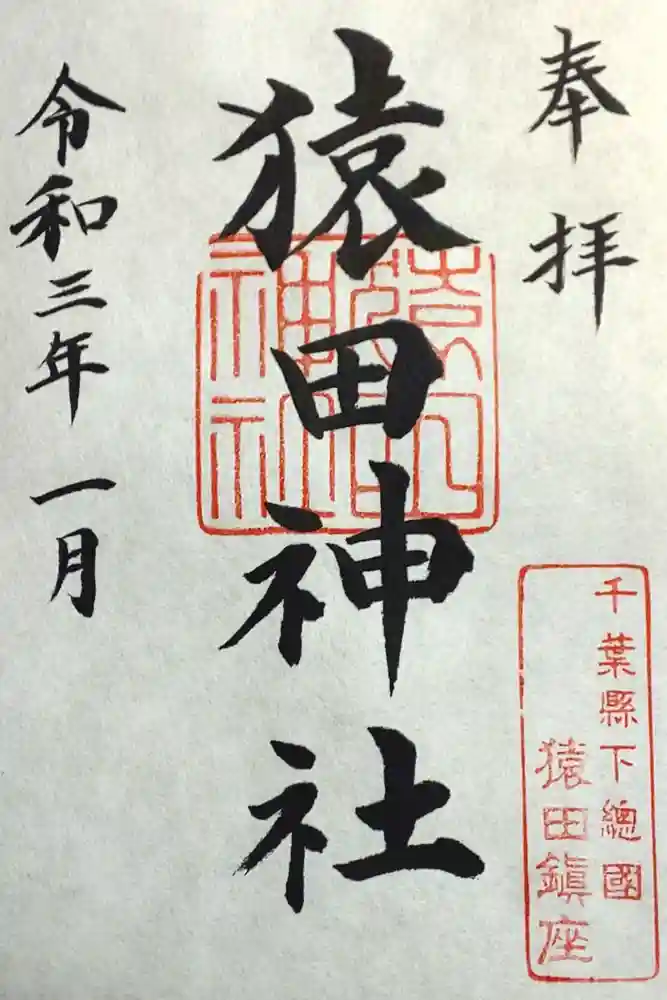 奉拝
猿田神社
猿田神社
令和三年 一月
千葉縣下總國
猿田鎭座